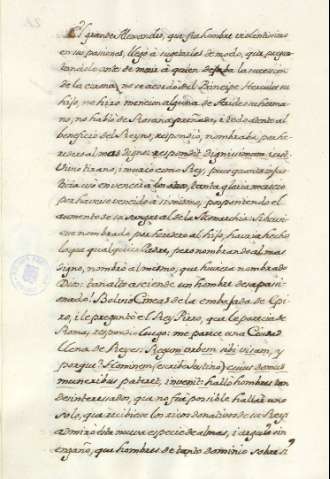 El grande Alexandro, que fue hombre violentissimo
en sus passiones, llegó a sugetarlas de modo, que pregun
tandole antes de morir á quien dejaba la sucession
de la corona, no se acordó del Principe Hercules su
hijo, no hizo mencion alguna de Arideo su herma
no, no habló de Roxana preñada, i todo atento al
beneficio del Reyno, respondió, nombraba por he
redero al mas digno: respondit dignissimum
tirano, i murió como Rey, pues quanta
en vencer á los otros, tanta gloria mereció
por haverse vencido á si mismo, posponiendo el
aumento de su sangre al de la Monarchia: Si huvie
ra nombrado por heredero al hijo, havria hecho
lo que qualquiera Padre, pero nombrando al mas
digno, nombró al mesmo, que huviera nombrado
Dios: tan alto asciende un hombre desapasio
nado! Bolvió Cineas de la embajada de Epi
ro, i le preguntó el Rey Pirro, que le parecia de
Roma, respondio luego: me parece una Ciudad
llena de Reyes: Regum urbem sibi visam, y
porque? Hominem (escribe Justino) cuius domus
muneribus pateret, invenit: halló hombres tan
desinteresados, que no fue posible hallar uno
solo, que recibiese los ricos donativos de su Rey
admiró esta nueva especie de almas, i arguió sin
engaño, que hombres de tanto dominio sobre si